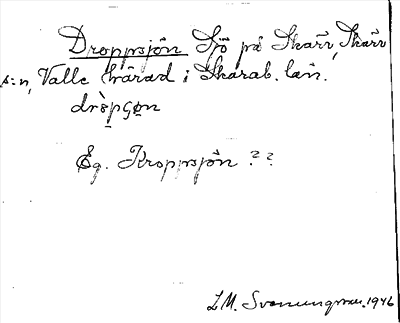 Droppsjön Sjö på Skarv, Skarv
s:n, Valle härad i Skarab. län.
Eg. Kroppsjön ??
L.M. Svanungsson. 1946